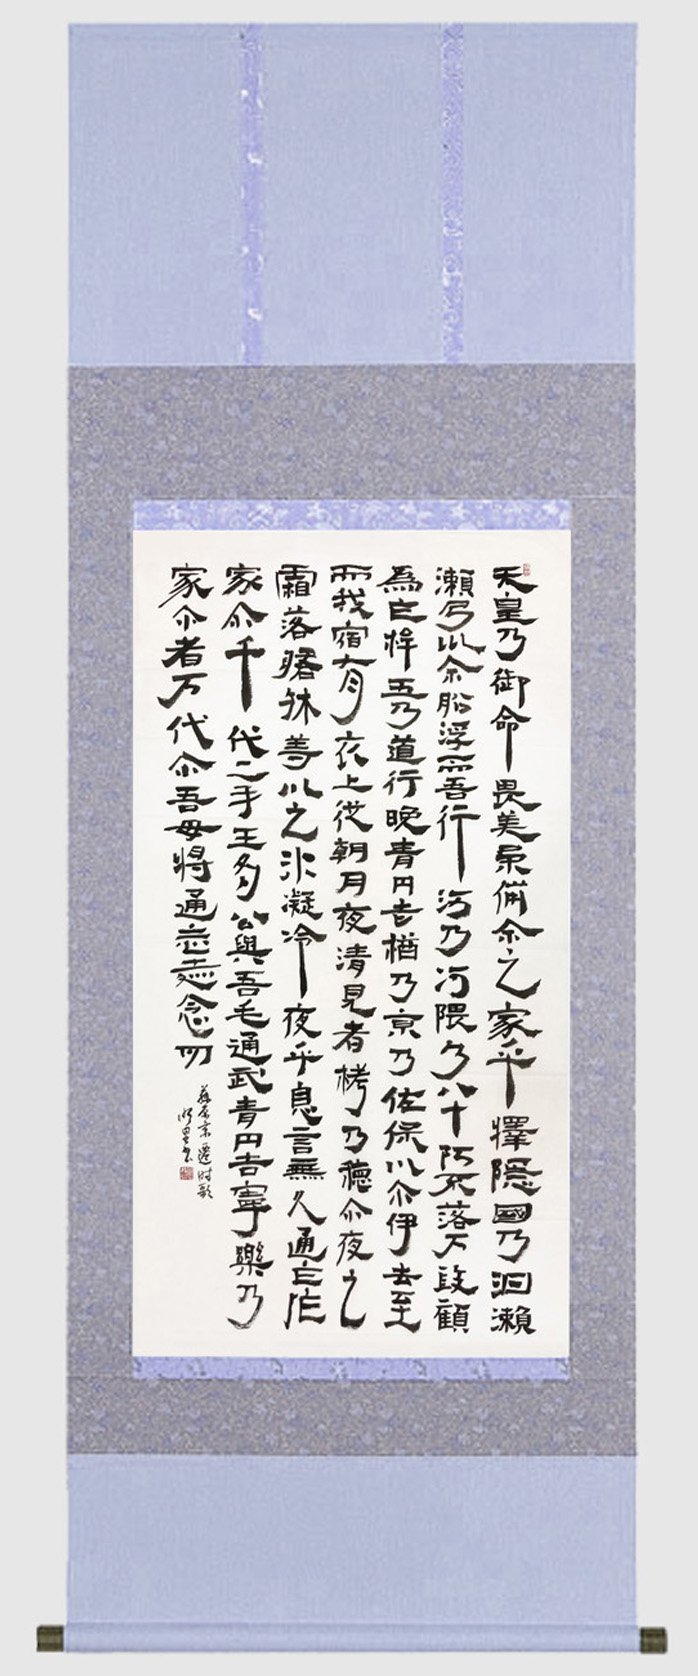 天皇乃御命畏美柔備尓之家乎釋隠國乃泊瀬
瀬乃川尓船浮而吾行河乃河隈乃八十阿不落万段顧
為乍桙玉乃道行晩青丹吉楢乃京乃佐保川尓伊去至
而我宿有衣上従朝月夜清見者栲乃穂尓夜之
霜落磐牀等川之氷凝冷夜乎息言無久通乍作
家尓千代二手王多公與吾毛通武青丹吉寧樂乃
家尓者万代尓吾母将通忘跡念勿
藤原京遷時歌